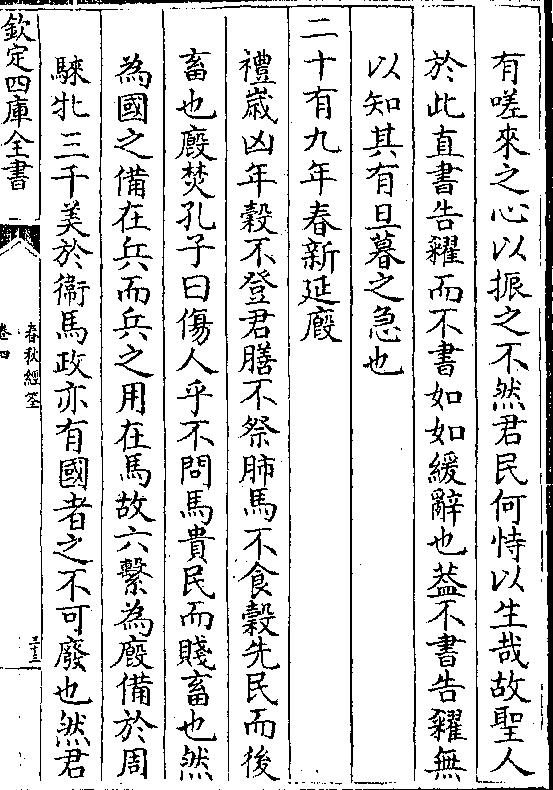 有嗟來之心以振之不然君民何恃以生哉故聖人
於此直書告糴而不書如如緩辭也葢不書告糴無
以知其有旦暮之急也
二十有九年春新延廏
禮歲凶年穀不登君膳不祭肺馬不食穀先民而後
畜也廏焚孔子曰傷人乎不問馬貴民而賤畜也然
為國之備在兵而兵之用在馬故六繫為廏備於周
騋牝三千美於衞馬政亦有國者之不可廢也然君
欽定四庫全書
春秋經筌
卷四
三十三